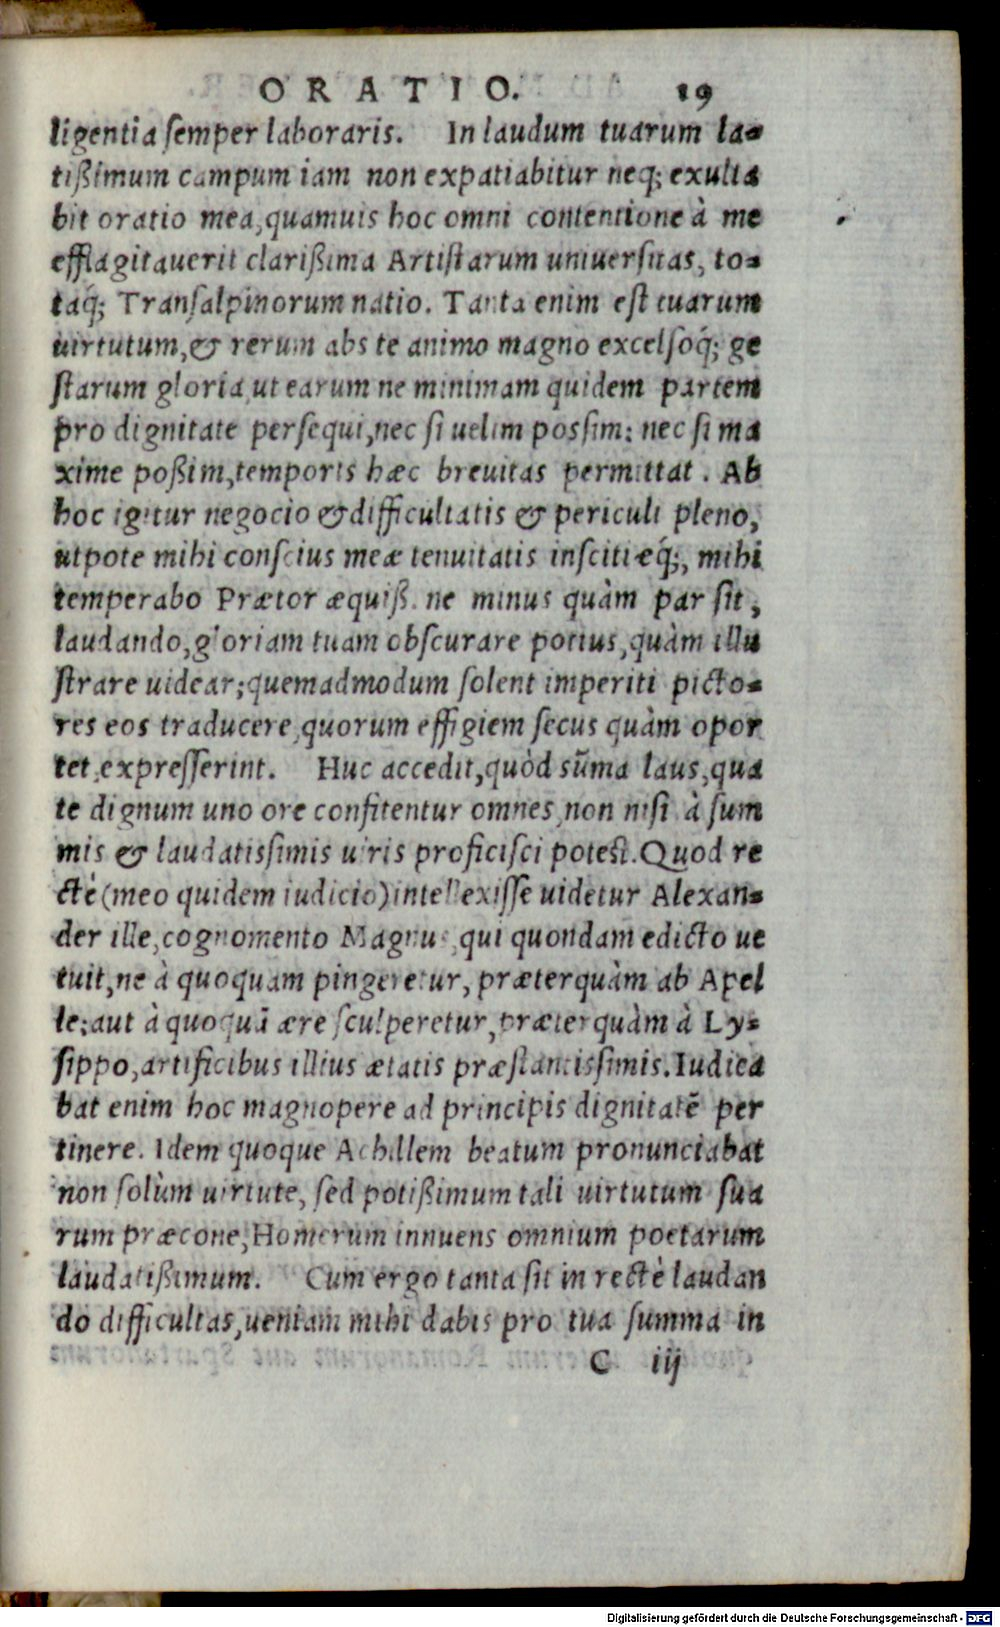 ORATIO. 19
ligentia semper laboraris. In laudum tuarum la-
tißimum campum iam non expatiabitur neq; exulta
bit oratio mea, quamuis hoc omni contentione à me
efflagitauerit clarißima Artistarum uniuersitas, to-
taq́; Transalpinorum natio. Tanta enim est tuarum
uirtutum, & rerum abs te animo magno excelsoq́; ge
starum gloria, ut earum ne minimam quidem partem
pro dignitate persequi, nec si uelim possim: nec si ma
xime poßim, temporis hæc breuitas permittat. Ab
hoc igitur negocio & difficultatis & periculi pleno,
utpote mihi conscius meæ tenuitatis inscitieq́;, mihi
temperabo Prætor æquiß. ne minus quàm par sit,
laudando, gloriam tuam obscurare potius, quàm illu
strare uidear; quemadmodum solent imperiti picto-
res eos traducere, quorum effigiem secus quàm opor
tet, expresserint. Huc accedit, quòd sūma laus, qua
te dignum uno ore confitentur omnes, non nisi à sum
mis & laudatissimis uiris proficisci potest. Quod re
ctè (meo quidem iudicio) intellexisse uidetur Alexan-
der ille, cognomento Magnus, qui quondam edicto ue
tuit, ne à quoquam pingeretur, præterquàm ab Apel
le; aut à quoquā ære sculperetur, præterquàm à Ly-
sippo, artificibus illius ætatis præstantissimis. Iudica
bat enim hoc magnopere ad principis dignitatē per
tinere. Idem quoque Achillem beatum pronunciabat
non solùm uirtute, sed potißimum tali uirtutum sua
rum præcone, Homerum innuens omnium poetarum
laudatißimum. Cum ergo tanta sit in rectè laudan
do difficultas, ueniam mihi dabis pro tua summa in
C iij
Digitalisierung gefördert durch die Deutsche Forschungsgemeinschaft - DFG